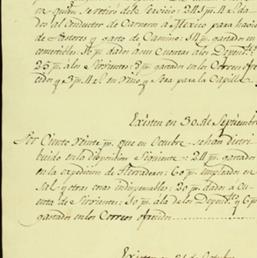 se retiró del Servicio: 243 p.s 4 r.s da-
dos al Conductor de Carneros a Mexico para havios
de Pastores y gasto de Camino: 31 p.s gastados en
comestibles: 31 p.s dados a sus Cuentas a los Depend.tes
25 p.s a los Sirvientes: 3 p.s gastados en los Correos
y 5 p.s 4 r.s en Vino, y Sera para la Capilla
Existen en 30 de Septiembre
Por Ciento Veinte p.s que en Octubre se han distri-
buido en la disposicion Siguiente: 24 p.s gastados
en la expedicion de Herraderos: 60 p.s empleados en
Sal y otras cosas indispensables: 20 p.s dados a cu-
enta de Sirvientes: 10 p.s a la de los Depend.tes y 6 p.s
gastados en los Correos
Existen en 31 de Octubre